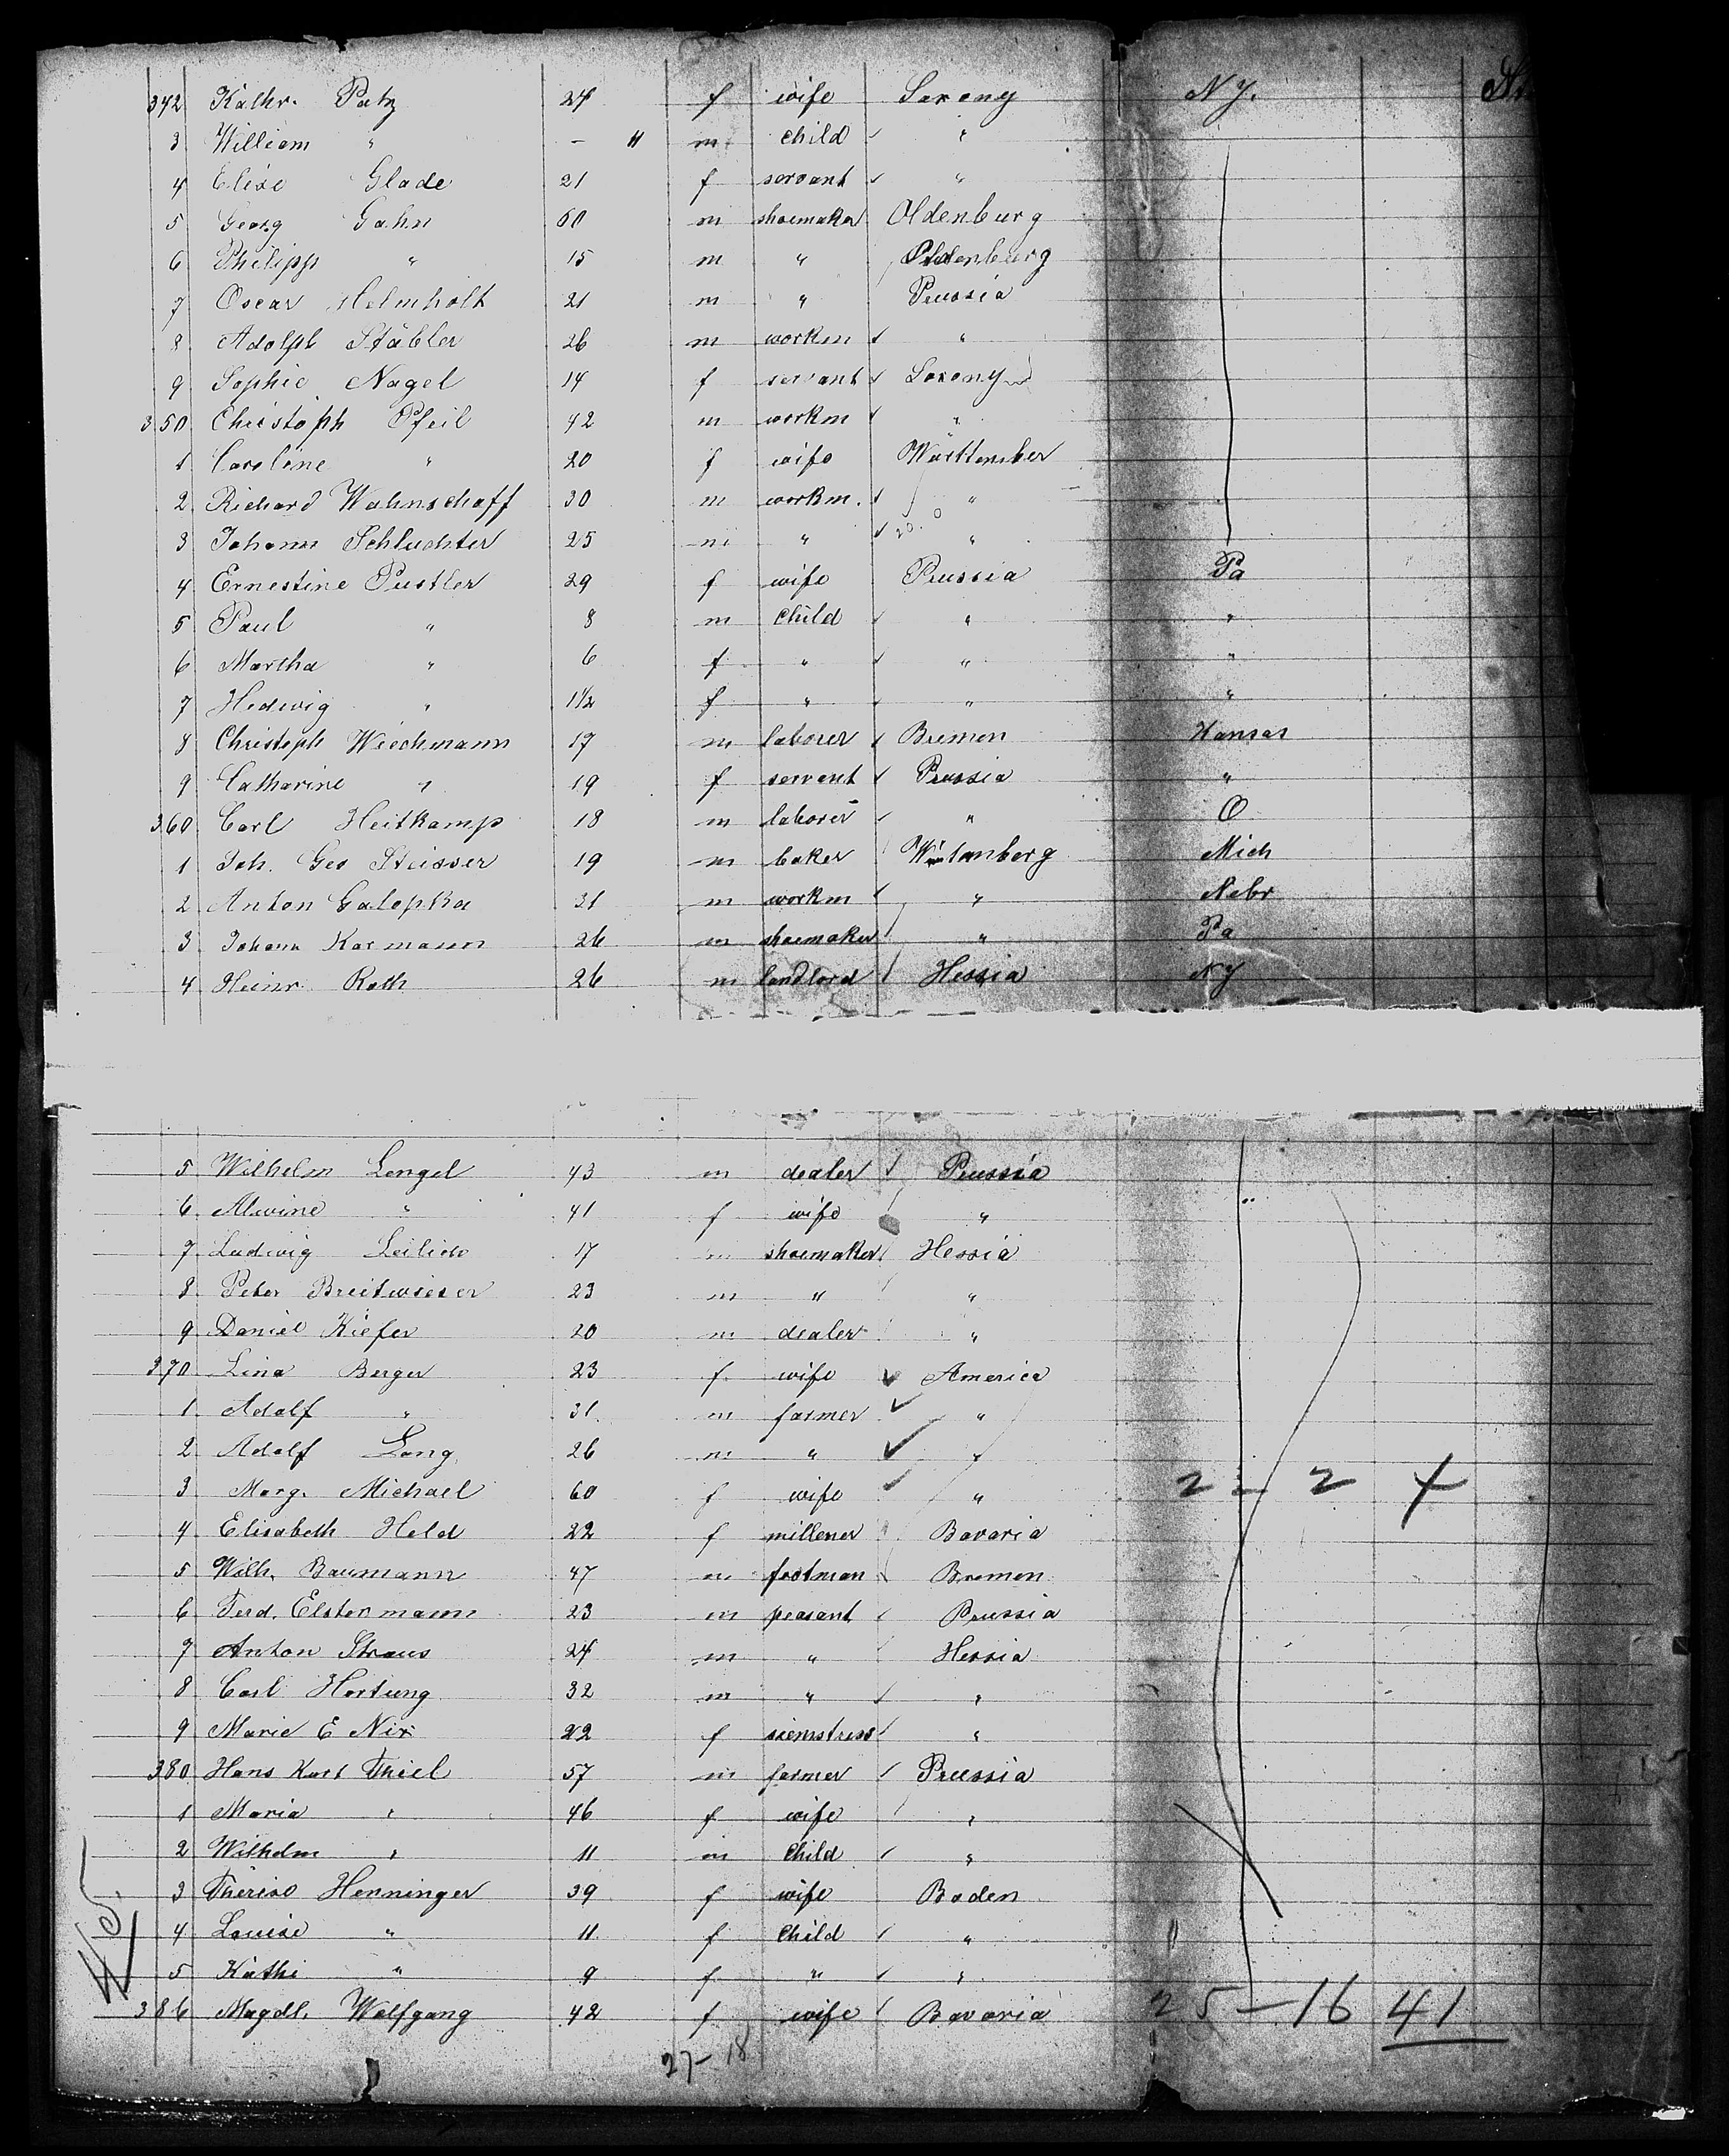 342 Kathr. Patz 24 f wife Saxony NY.
3 William " - 11 m child "
4 Elise Glade 21 f servant "
5 Georg Gahn 60 m shoemaker Oldenburg
6 Philipp " 15 m " Oldenburg
7 Oscar Helmholt 21 m " Prussia
8 Adolph Stäbler 26 m workm "
9 Sophie Nagel 14 f servant Saxony
350 Christoph Pfeil 42 m workm "
1 Caroline " 20 f wife Württember
2 Richard Wahnschaff 30 m workm. "
3 Johann Schluchter 25 m " "
4 Ernestine Pustler 29 f wife Prussia Pa
5 Paul " 8 m child " "
6 Martha " 6 f " " "
7 Hedwig " 1 1/2 f " " "
8 Christoph Wiechmann 17 m laborer Bremen Kansas
9 Catharine " 19 f servant Prussia "
360 Carl Heitkamp 18 m laborer " O
1 Joh. Geo Steisser 19 m baker Mich
2 Anton Galopka 31 m workm " Nebr
3 Johann Karmann 26 m shoemaker " Pa
4 Heinr. Roth 26 m landlord Hessia NY
5 Wilhelm Lengel 43 m dealer Prussia
6 Alwine " 41 f wife " "
7 Ludwig 17 m shoemaker Hessia
8 Peter Breitwieser 23 m " "
9 Daniel Kiefer 20 m dealer "
370 Lina Berger 23 f wife America
1 Adolf " 31 m farmer "
2 Adolf Lang 26 m " "
3 Marg. Michael 60 f wife " 2 2 2 4
4 Elisabeth Held 22 f millener Bavaria
5 Wilh. Baumann 47 m footman Bremen
6 Ferd. Elstermann 23 m peasant Prussia
7 Anton Straus 24 m " Hessia
8 Carl Hartung 32 m " "
9 Marie E Nix 22 f siemstress "
380 Hans Kurt Thiel 57 m farmer Prussia
1 Maria " 46 f wife "
2 Wilhelm " 11 m child "
3 Therise Henninger 39 f wife Baden
4 Louise " 11 f child "
5 Käthi " 9 f " "
386 Magdl. Wolfgang 42 f wife Bavaria 25-16 41
27-18